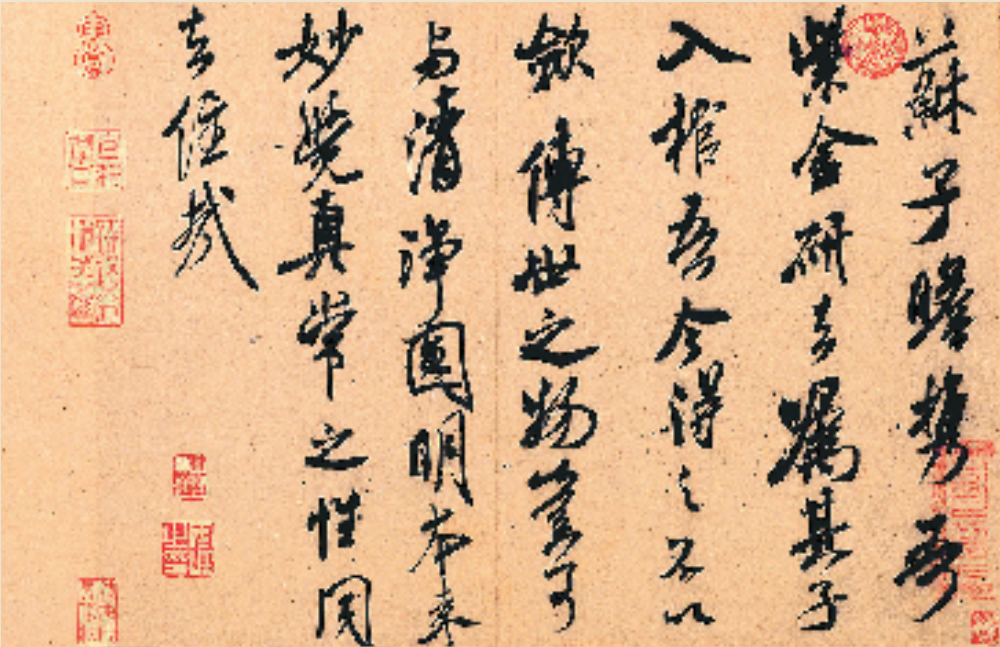 蘇子瞻携吾
紫金研去嘱其子
入棺吾今得之不以
歛傳世之物豈可
与清净圓明本来
妙覺真常之性同
去住哉